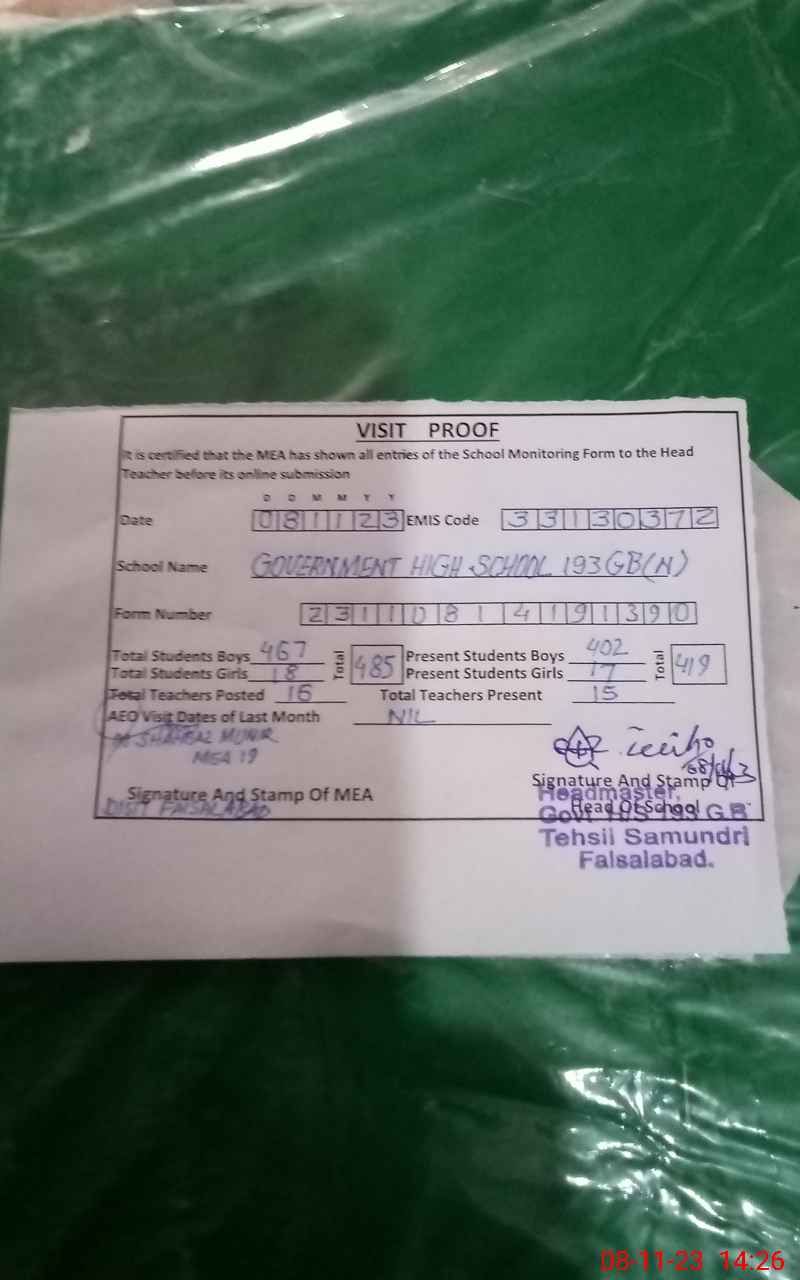 VISIT PROOF
It is certified that the MEA has shown all entries of the School Monitoring Form to the Head
Teacher before its online submission
D D M M Y Y
Date 081123 EMIS Code 33130372
School Name GOVERNMENT HIGH SCHOOL 193 GB(N)
Form Number 23110814191390
Total Students Boys 467 Total 485 Present Students Boys 402 Total 419
Total Students Girls 18 Present Students Girls 17
Total Teachers Posted 16 Total Teachers Present 15
AEO Visit Dates of Last Month NIL
MUNIR
MEA 19
08/11/23
Signature And Stamp Of MEA
Signature And Stamp Of
Head Of School
DISTT FAISALABAD
Headmaster,
Govt H/S 193 G.B
Tehsil Samundri
Faisalabad.
08-11-23 14:26